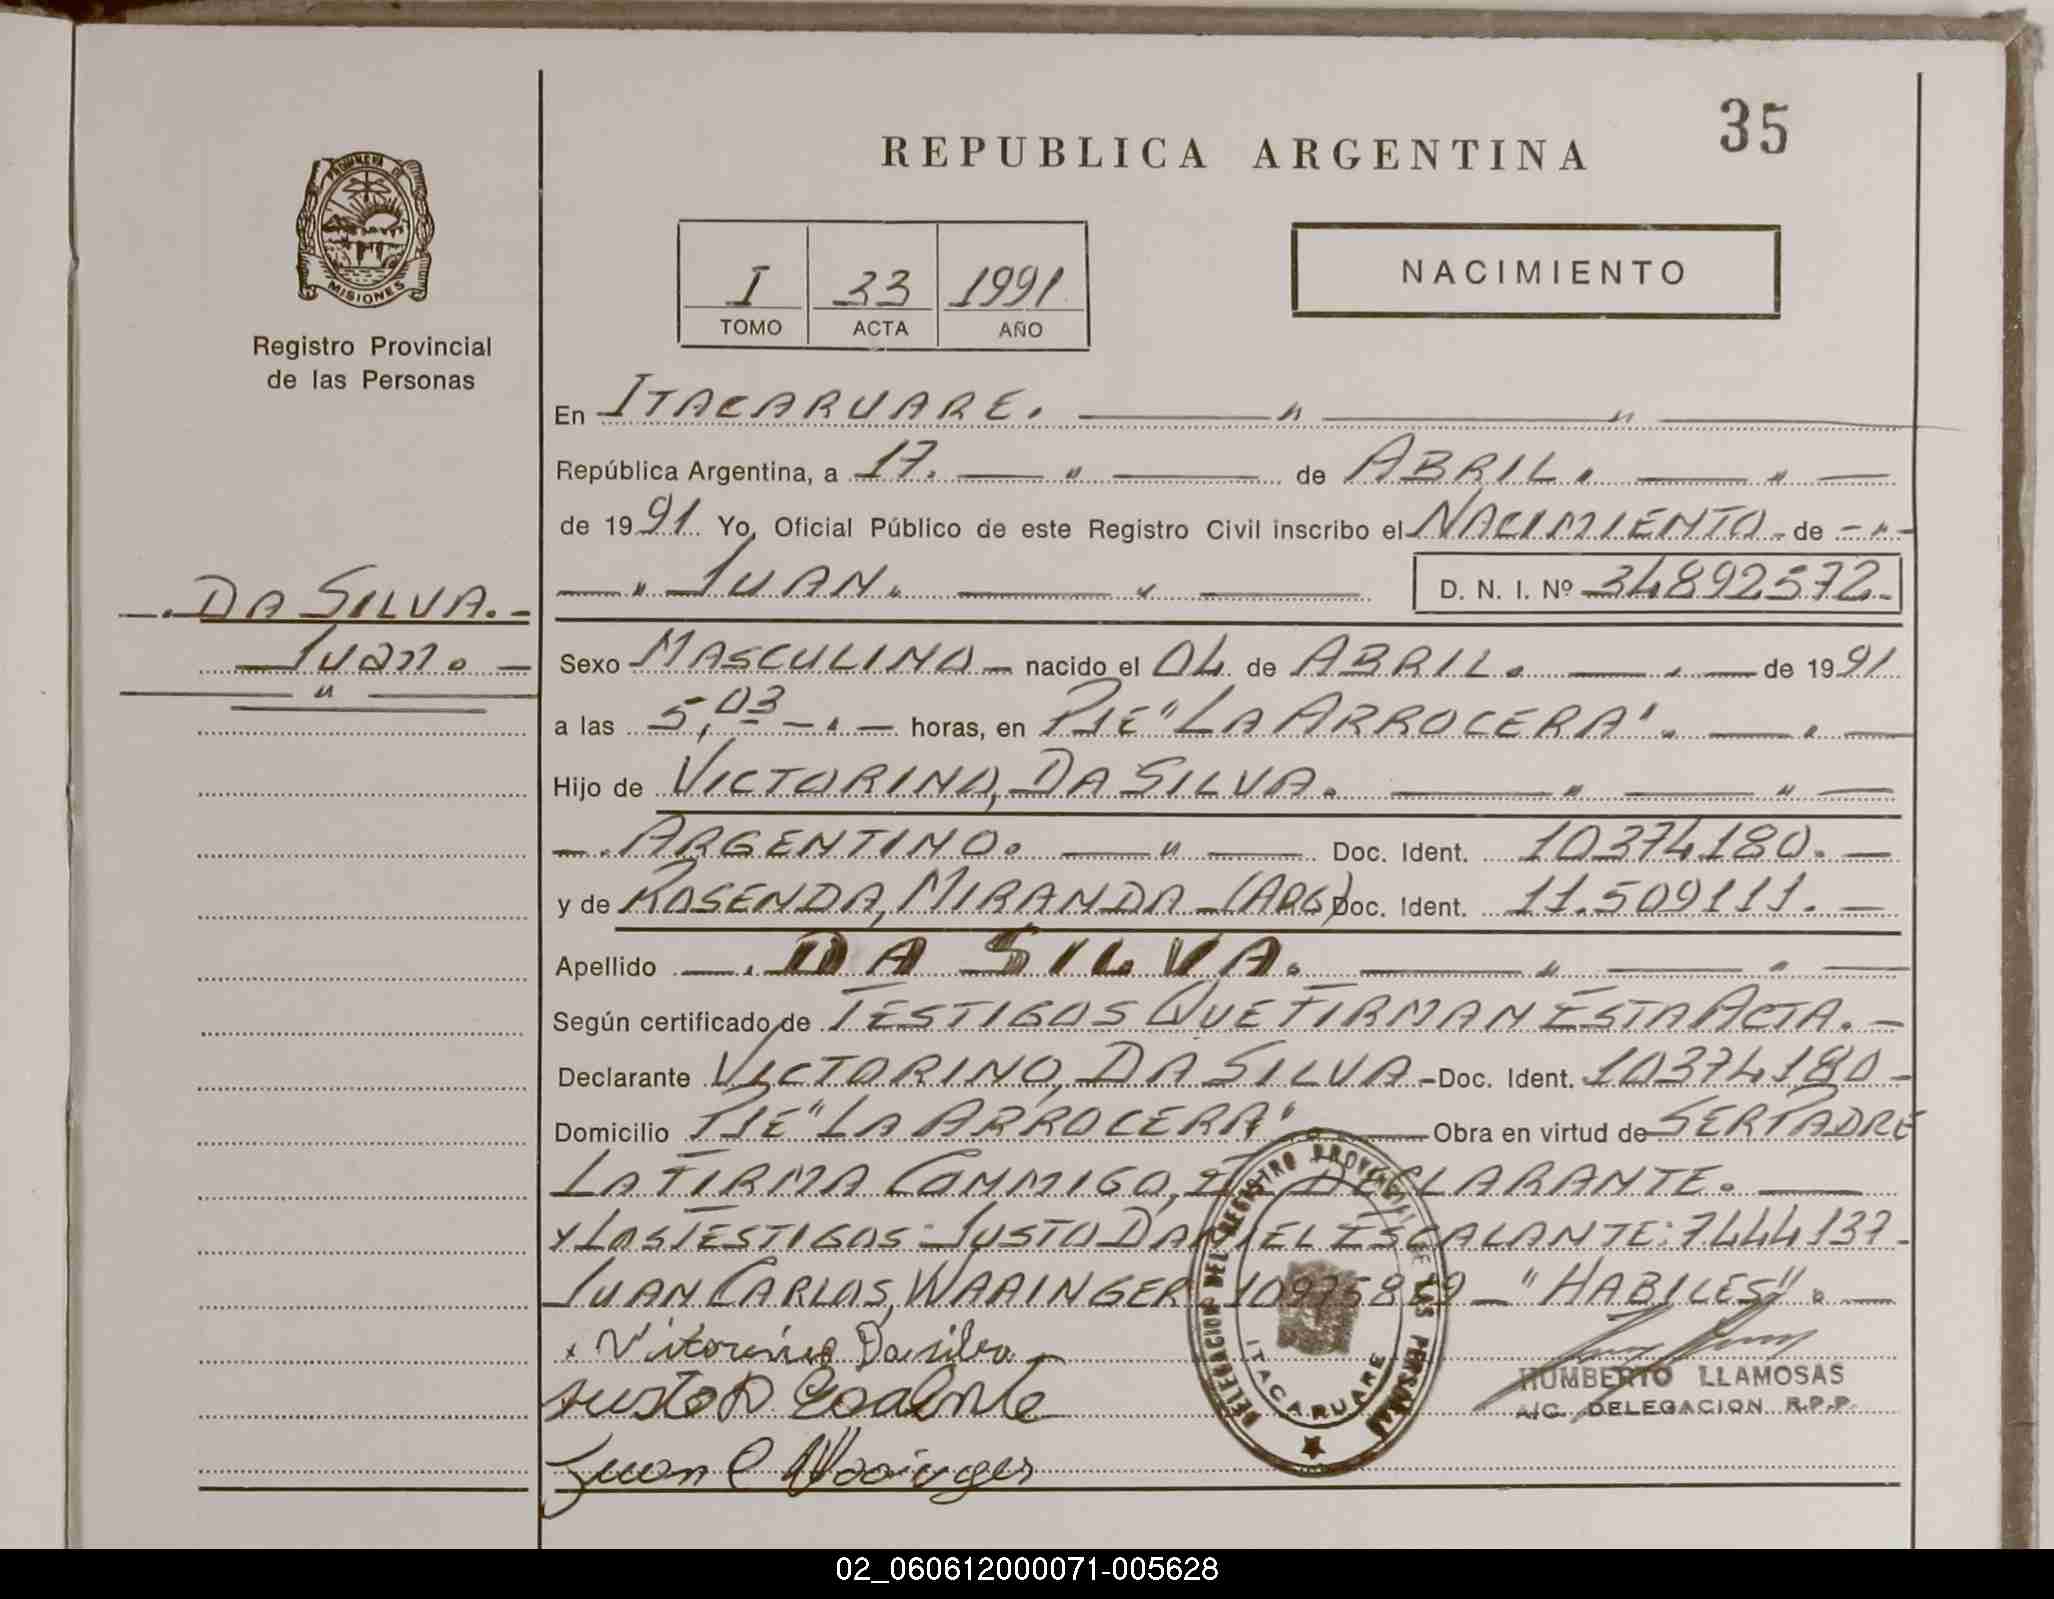 35
REPUBLICA ARGENTINA
PROVINCIA DE
MISIONES
Registro Provincial
de las Personas
I 33 1991
TOMO ACTA AÑO
NACIMIENTO
En ITACARUARE. — " — " —
República Argentina, a 17. — " — de ABRIL. — " —
de 1991 Yo, Oficial Público de este Registro Civil inscribo el NACIMIENTO - de - " -
— " JUAN. — " — D. N. I. Nº 34892572.-
—. DA SILVA. -
— Juan. —
— " —
Sexo MASCULINO — nacido el 04 de ABRIL. — . — de 1991
a las 5,03 — . — horas, en PJE "LA ARROCERA". — . —
Hijo de VICTORINO, DA SILVA. — " — " —
—. ARGENTINO. — " — Doc. Ident. 10374180. —
y de ROSENDA, MIRANDA - (ARG) Doc. Ident. 11.509111. —
Apellido —. DA SILVA. — " — . —
Según certificado de TESTIGOS QUE FIRMAN ESTA ACTA. —
Declarante VICTORINO, DA SILVA - Doc. Ident. 10374180 -
Domicilio PJE "LA ARROCERA". — Obra en virtud de SER PADRE
LA FIRMA CONMIGO, EL DECLARANTE. —
Y LOS TESTIGOS: JUSTO DANIEL ESCALANTE: 7444137-
JUAN CARLOS, WAAINGER - — "HABILES". —
x Vitorino Dasilva
Justo D Escalante
Juan C Waainger
DELEGACION DEL REGISTRO PROVINCIAL DE LAS PERSONAS
ITACARUARE
HUMBERTO LLAMOSAS
A/C. DELEGACION R.P.P.
02_060612000071-005628